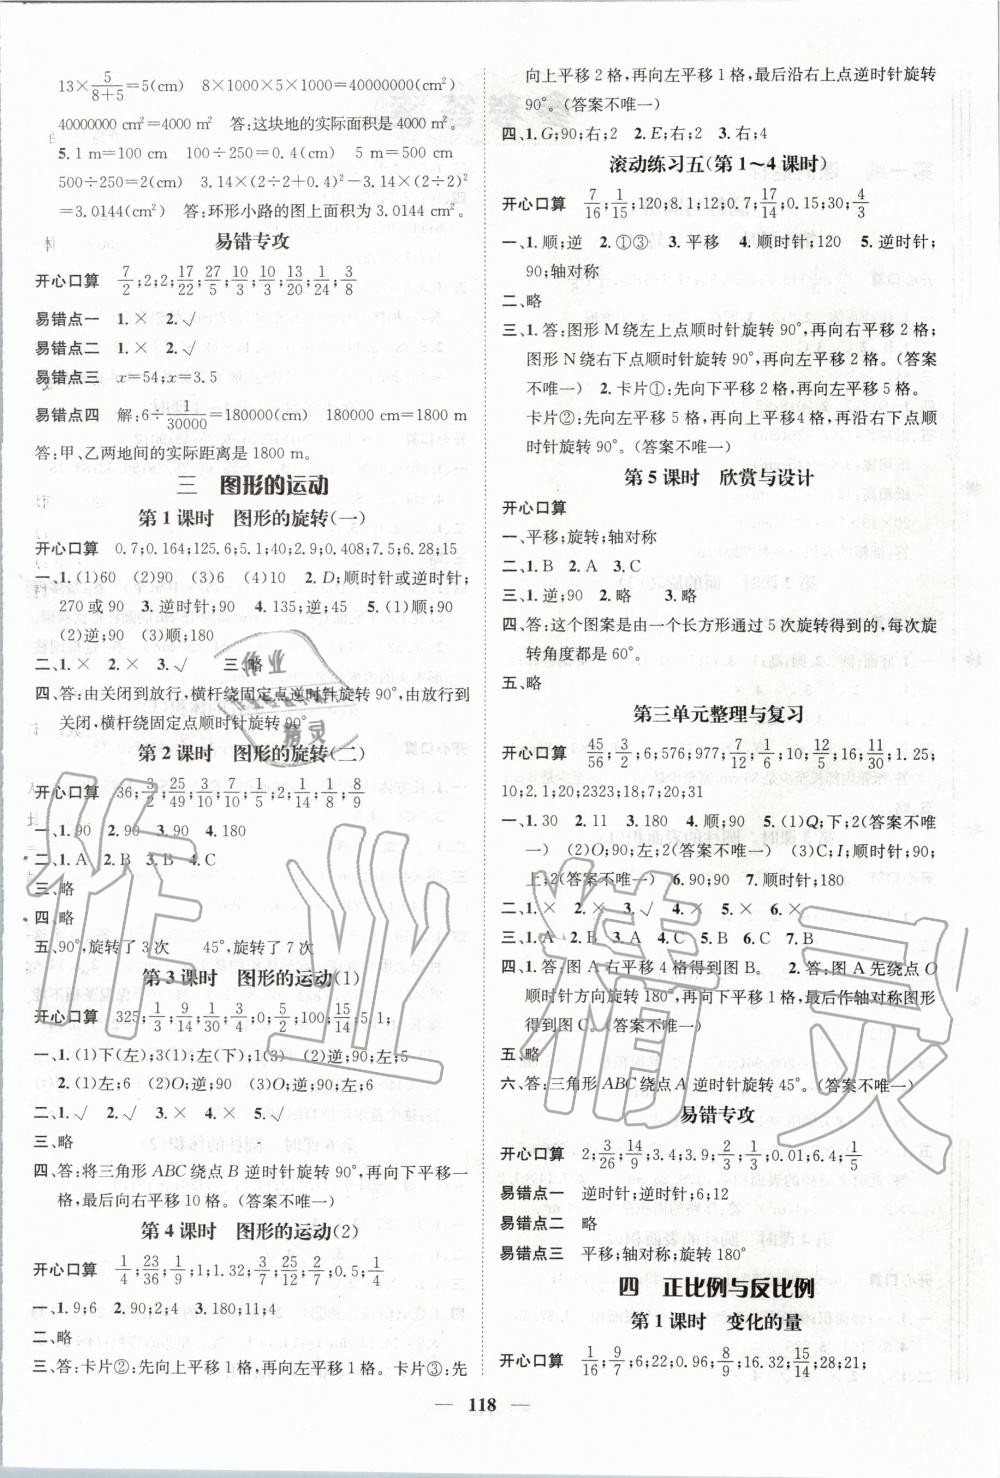 13×5/(8+5)=5(cm)　8×1000×5×1000=40000000(cm²)
40000000 cm²=4000 m²　答:这块地的实际面积是 4000 m²。
5.1 m=100 cm　100÷250=0.4(cm)　5 m=500 cm
500÷250=2(cm)　3.14×(2÷2+0.4)²-3.14×(2÷2)²
=3.0144(cm²)　答:环形小路的图上面积为 3.0144 cm²。
易错专攻
开心口算　7/2;2;2;17/22;27/5;10/3;10/3;13/20;1/24;3/8
易错点一　1.×　2.√
易错点二　1.×　2.√
易错点三　x=54;x=3.5
易错点四　解:6÷1/30000=180000(cm)　180000cm=1800 m
答:甲、乙两地间的实际距离是 1800 m。
三　图形的运动
第 1 课时　图形的旋转(一)
开心口算　0.7;0.164;125.6;5.1;40;2.9;0.408;7.5;6.28;15
一、1.(1)60　(2)90　(3)6　(4)10　2.D;顺时针或逆时针;
270 或 90　3.逆时针;90　4.135;逆;45　5.(1)顺;90
(2)逆;90　(3)顺;180
二、1.×　2.×　3.√　三、略
四、答:由关闭到放行,横杆绕固定点逆时针旋转 90°,由放行到
关闭,横杆绕固定点顺时针旋转 90°。
第 2 课时　图形的旋转(二)
开心口算　36;3/2;25/49;3/10;7/10;1/5;2;1/14;1/8;8/9
一、1.90　2.90　3.90　4.180
二、1.A　2.B　3.B　4.C
三、略
四、略
五、90°,旋转了 3 次　45°,旋转了 7 次
第 3 课时　图形的运动(1)
开心口算　325;1/3;9/14;1/30;3/4;0;5/2;100;15/14;5.1;
一、1.(1)下(左);3(1);左(下);1(3)　(2)O;逆;90;左;5
2.(1)左;6　(2)O;逆;90　(3)O;逆;90;左;6
二、1.√　2.√　3.×　4.×　5.√
三、略
四、答:将三角形 ABC 绕点 B 逆时针旋转 90°,再向下平移一
格,最后向右平移 10 格。(答案不唯一)
第 4 课时　图形的运动(2)
开心口算　1/4;23/36;1/9;1;1.32;3/7;25/12;7/12;0;5/4
一、1.9;6　2.90;2;4　3.180;11;4
二、略
三、答:卡片②:先向上平移 1 格,再向左平移 1 格。卡片③:先
向上平移 2 格,再向左平移 1 格,最后沿右上点逆时针旋转
90°。(答案不唯一)
四、1.G;90;右;2　2.E;右;2　3.右;4
滚动练习五(第 1～4 课时)
开心口算　7/16;1/15;120;8.1;12;0.7;17/14;0.15;30;4/3
一、1.顺;逆　2.①③　3.平移　4.顺时针;120　5.逆时针;
90;轴对称
二、略
三、1.答:图形 M绕左上点顺时针旋转 90°,再向右平移 2 格;
图形 N 绕右下点顺时针旋转 90°,再向左平移 2 格。(答案
不唯一)　2.卡片①:先向下平移 2 格,再向左平移 5 格。
卡片②:先向左平移 5 格,再向上平移4格,再沿右下点顺
时针旋转 90°。(答案不唯一)
第 5 课时　欣赏与设计
开心口算　略
一、平移;旋转;轴对称
二、1.B　2.A　3.C
三、1.逆;90　2.略　3.略
四、答:这个图案是由一个长方形通过 5 次旋转得到的,每次旋
转角度都是 60°。
五、略
第三单元整理与复习
开心口算　45/56;2/3;6;576;977;7/12;1/6;10;12/5;12;16;11/30;1.25;
10;2.1;20;2323;18;7;20;31
一、1.30　2.11　3.180　4.顺;90　5.(1)Q;下;2(答案不唯
一)　(2)O;逆;90;左;2(答案不唯一)　(3)C;I;顺时针;90;
上;2(答案不唯一)　6.90;90　7.顺时针;180
二、1.×　2.×　3.√　4.×　5.×　6.×
三、1.A　2.B　3.B　4.C　5.A　6.C　7.B
四、1.答:图 A 右平移 4 格得到图 B。　2.答:图 A 先绕点 O
顺时针方向旋转 180°,再向下平移,最后作轴对称图形
得到图 C。(答案不唯一)
五、略
六、答:三角形 ABC 绕点 A 逆时针旋转 45°。(答案不唯一)
易错专攻
开心口算　2;3/26;14/9;3.4;3.9;2/3;1/3;0.01;6.4;1/5
易错点一　逆时针;逆时针;6;12
易错点二　略
易错点三　平移;轴对称;旋转 180°
四　正比例与反比例
第 1 课时　变化的量
开心口算　1/16;9/7;6;22;0.96;8/9;16.32;15/14;28;21;
— 118 —
作业精灵